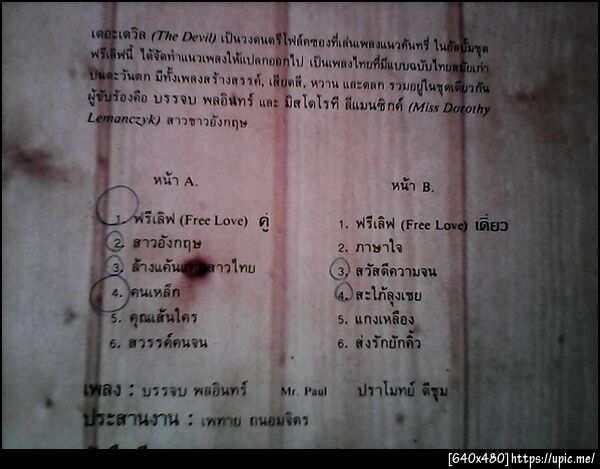 เดอะเดวิล (The Devil) เป็นวงดนตรีโฟล์คซองที่เล่นเพลงแนวคันทรี่ ในอัลบั้มชุด
ฟรีเลิฟนี้ ได้จัดทำแนวเพลงให้แปลกออกไป เป็นเพลงไทยที่มีแบบฉบับไทยสมัยเก่า
ปนตะวันตก มีทั้งเพลงสร้างสรรค์, เสียดสี, หวาน และตลก รวมอยู่ในชุดเดียวกัน
ผู้ขับร้องคือ บรรจบ พลอินทร์ และ มิสโดโรที ลีแมนซิกค์ (Miss Dorothy
Lemanczyk) สาวชาวอังกฤษ
หน้า A.
1. ฟรีเลิฟ (Free Love) คู่
2. สาวอังกฤษ
3. ล้างแค้นแทนสาวไทย
4. คนเหล็ก
5. คุณเส้นใคร
6. สวรรค์คนจน
หน้า B.
1. ฟรีเลิฟ (Free Love) เดี่ยว
2. ภาษาใจ
3. สวัสดีความจน
4. สะใภ้ลุงเชย
5. แกงเหลือง
6. ส่งรักยักคิ้ว
เพลง : บรรจบ พลอินทร์ Mr. Paul ปราโมทย์ ดีชุม
ประสานงาน : เพทาย ถนอมจิตร
[640x480]https://upic.me/